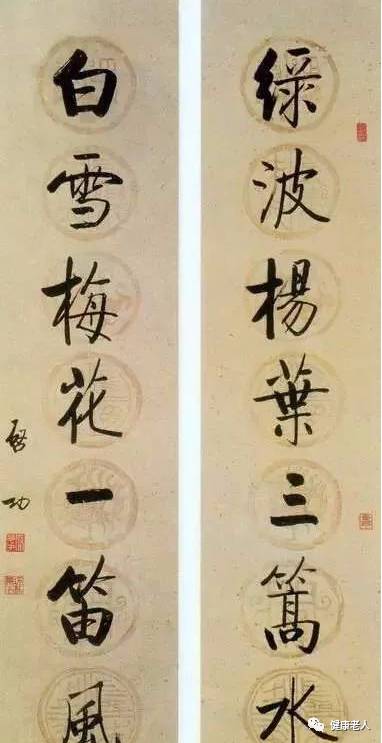 绿波楊葉三篙水
白雪梅花一笛風
啓功
健康老人